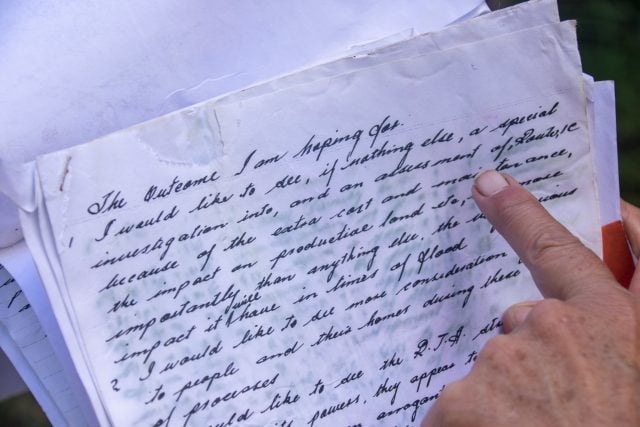 The Outcome I am hoping for.
1 I would like to see, if nothing else, a special
investigation into, and an assessment of, Route, 1C
because of the extra cost and
the impact on productive land etc, more
importantly than anything else, the
impact it will have in times of flood
2 I would like to see more consideration
to people and their homes during these
of processes
like to see the R.T.A.
powers, they appear to
arrogant